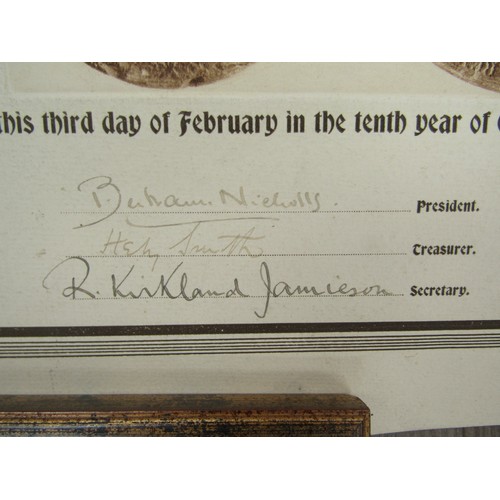 this third day of February in the tenth year of
Bertram Nicholls. President.
Hely Smith Treasurer.
R. Kirkland Jamieson Secretary.